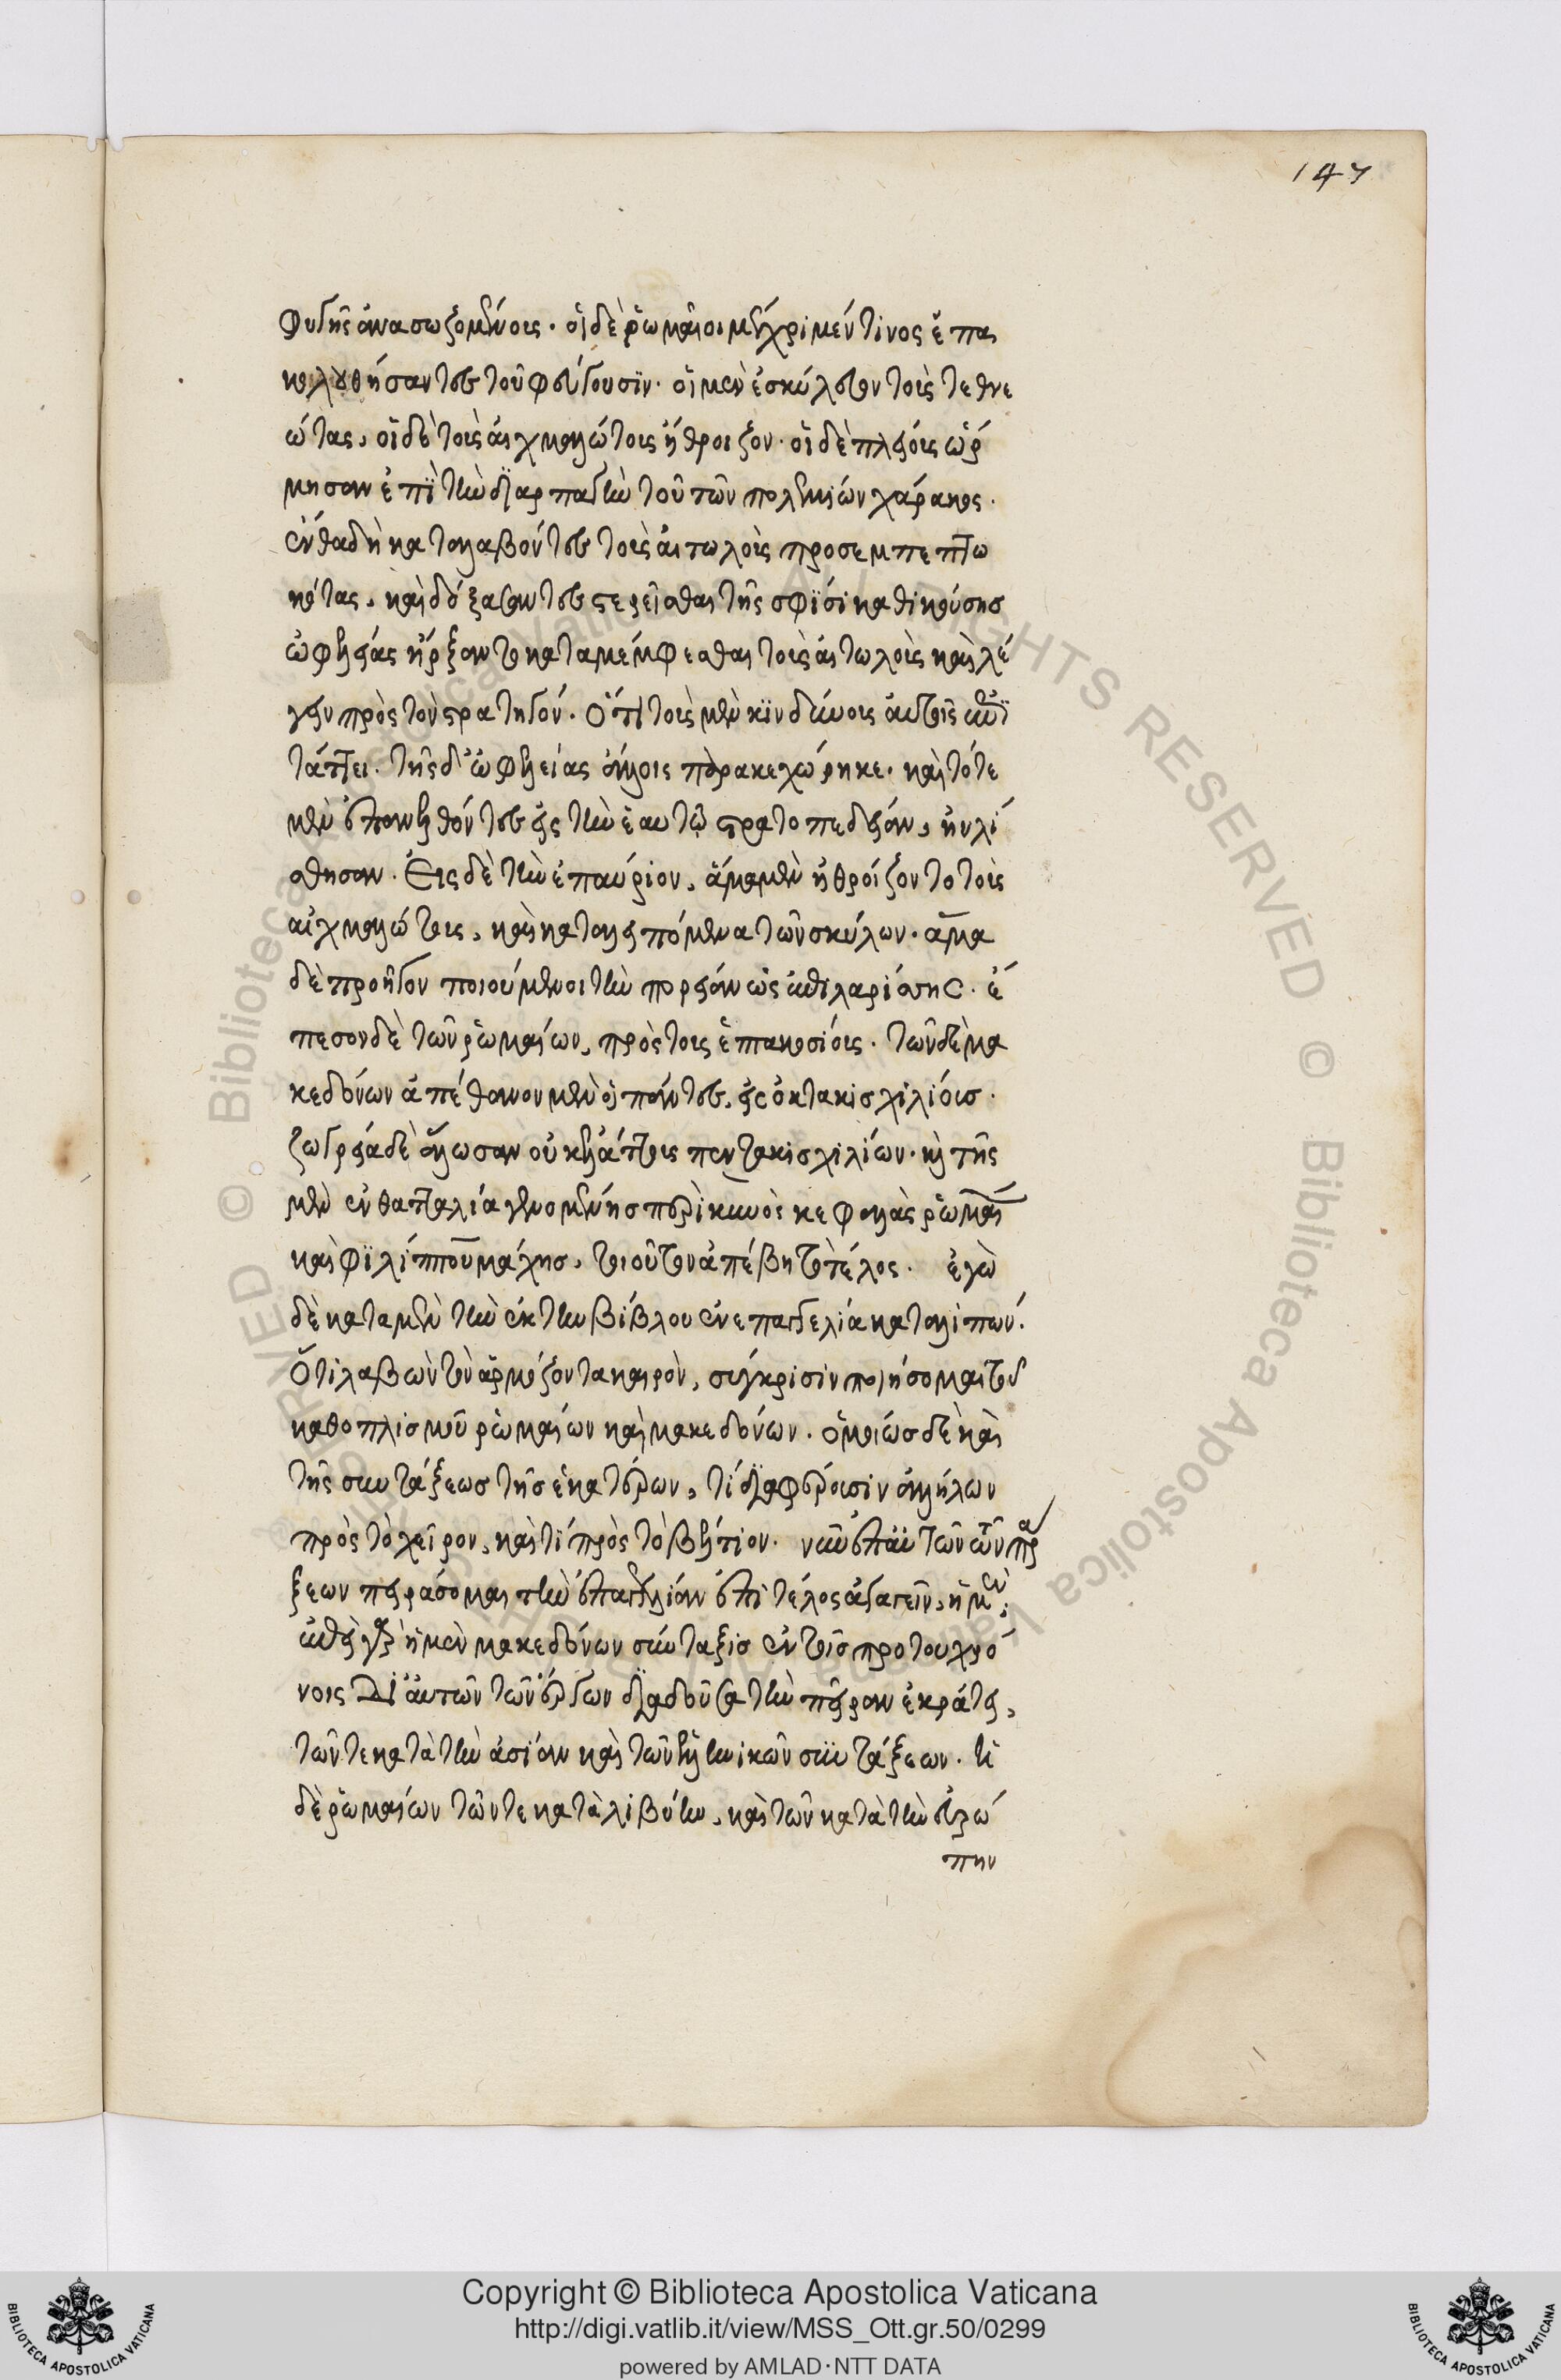 147
φυγῆς ἀνασωζομένοις. οἱ δὲ ῥωμαῖοι μέχρι μέν τινος ἐπα
κολουθήσαντες τοῖς φεύγουσιν. οἱ μὲν ἐσκύλευον τοὺς τεθνε
ώτας, οἱ δὲ τοὺς αἰχμαλώτους ἤθροιζον. οἱ δὲ πλείους ὥρ
μησαν ἐπὶ τὴν διαρπαγὴν τοῦ τῶν πολεμίων χάρακος.
ἔνθα δὴ καταλαβόντες τοὺς αἰτωλοὺς προσεμπεπτω
κότας, καὶ δόξαντες στερεῖσθαι τῆς σφίσι καθηκούσης
ὠφελείας ἤρξαντο καταμέμφεσθαι τοὺς αἰτωλοὺς καὶ λέ
γειν πρὸς τὸν στρατηγόν. ὅτι τοὺς μὲν κινδύνους αὐτοῖς ἐπι
τάττει. τῆς δ' ὠφελείας ἄλλοις παρακεχώρηκε. καὶ τότε
μὲν ἐπανελθόντες εἰς τὴν ἑαυτῶν στρατοπεδείαν, ηὐλί
σθησαν. εἰς δὲ τὴν ἐπαύριον, ἅμα μὲν ἤθροιζον τοὺς
αἰχμαλώτους, καὶ τὰ λειπόμενα τῶν σκύλων. ἅμα
δὲ προῆγον ποιούμενοι τὴν πορείαν ὡς ἐπὶ λαρίσης. ἔ
πεσον δὲ τῶν ῥωμαίων, πρὸς τοὺς ἑπτακοσίους. τῶν δὲ μα
κεδόνων ἀπέθανον μὲν οἱ πάντες, εἰς ὀκτακισχιλίους.
ζωγρείᾳ δὲ ἑάλωσαν οὐκ ἐλάττους πεντακισχιλίων. καὶ τῆς
μὲν ἐν θετταλίᾳ γενομένης περὶ κυνὸς κεφαλὰς ῥωμαί
καὶ φιλίππου μάχης, τοιοῦτον ἀπέβη τὸ τέλος. ἐγὼ
δὲ κατὰ μὲν τὴν ἕκτην βίβλον ἐν ἐπαγγελίᾳ καταλιπών.
ὅτι λαβὼν τὸν ἁρμόζοντα καιρόν, σύγκρισιν ποιήσομαι τοῦ
καθοπλισμοῦ ῥωμαίων καὶ μακεδόνων. ὁμοίως δὲ καὶ
τῆς συντάξεως τῆς ἑκατέρων, τί διαφέρουσιν ἀλλήλων
πρὸς τὸ χεῖρον, καὶ τί πρὸς τὸ βέλτιον. νῦν ἐπ' αὐτῶν τῶν πρά
ξεων πειράσομαι τὴν ἐπαγγελίαν ἐπὶ τέλος ἀγαγεῖν,
ἐπεὶ γὰρ ἡ μὲν μακεδόνων σύνταξις ἐν τοῖς προτοῦ χρό
νοις δι' αὐτῶν τῶν ἔργων διαδοῦσα τὴν πεῖραν ἐκράτει,
τῶν τε κατὰ τὴν ἀσίαν καὶ τῶν ἑλληνικῶν συντάξεων. ἡ
δὲ ῥωμαίων τῶν τε κατὰ λιβύην, καὶ τῶν κατὰ τὴν εὐρώ
πην
Copyright © Biblioteca Apostolica Vaticana
http://digi.vatlib.it/view/MSS_Ott.gr.50/0299
powered by AMLAD·NTT DATA